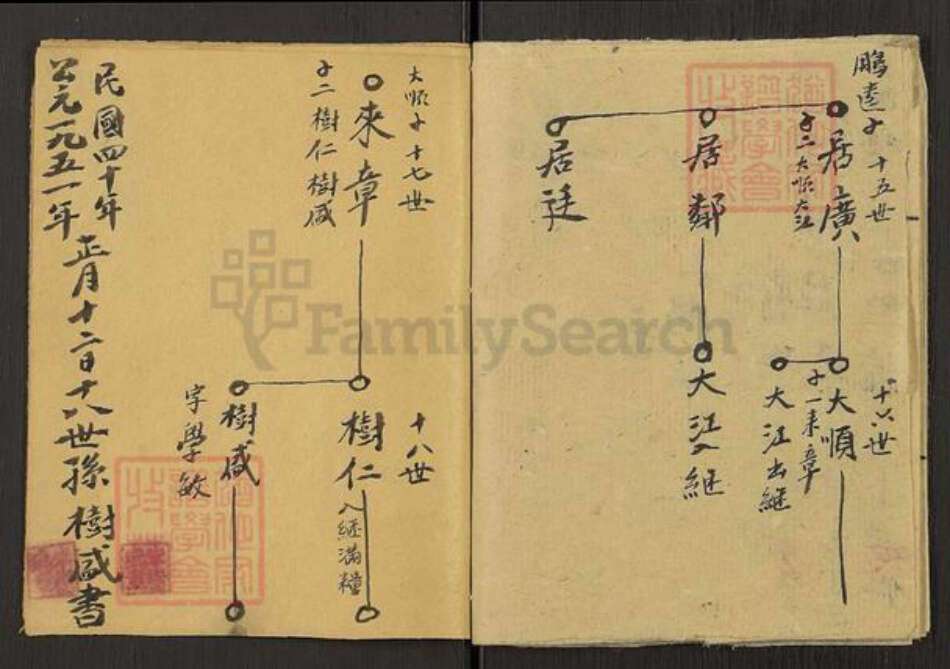 鵬逵子 十五世
居廣
子二大順大江
居鄰
居廷
十六世
大順
子一來章
大江出継
大江入継
大順子十七世
來章
子二樹仁樹咸
十八世
樹仁
入継滿糧
樹咸
字學敏
民國四十年
公元一九五一年
正月十二日十八世孫樹咸書
FamilySearch